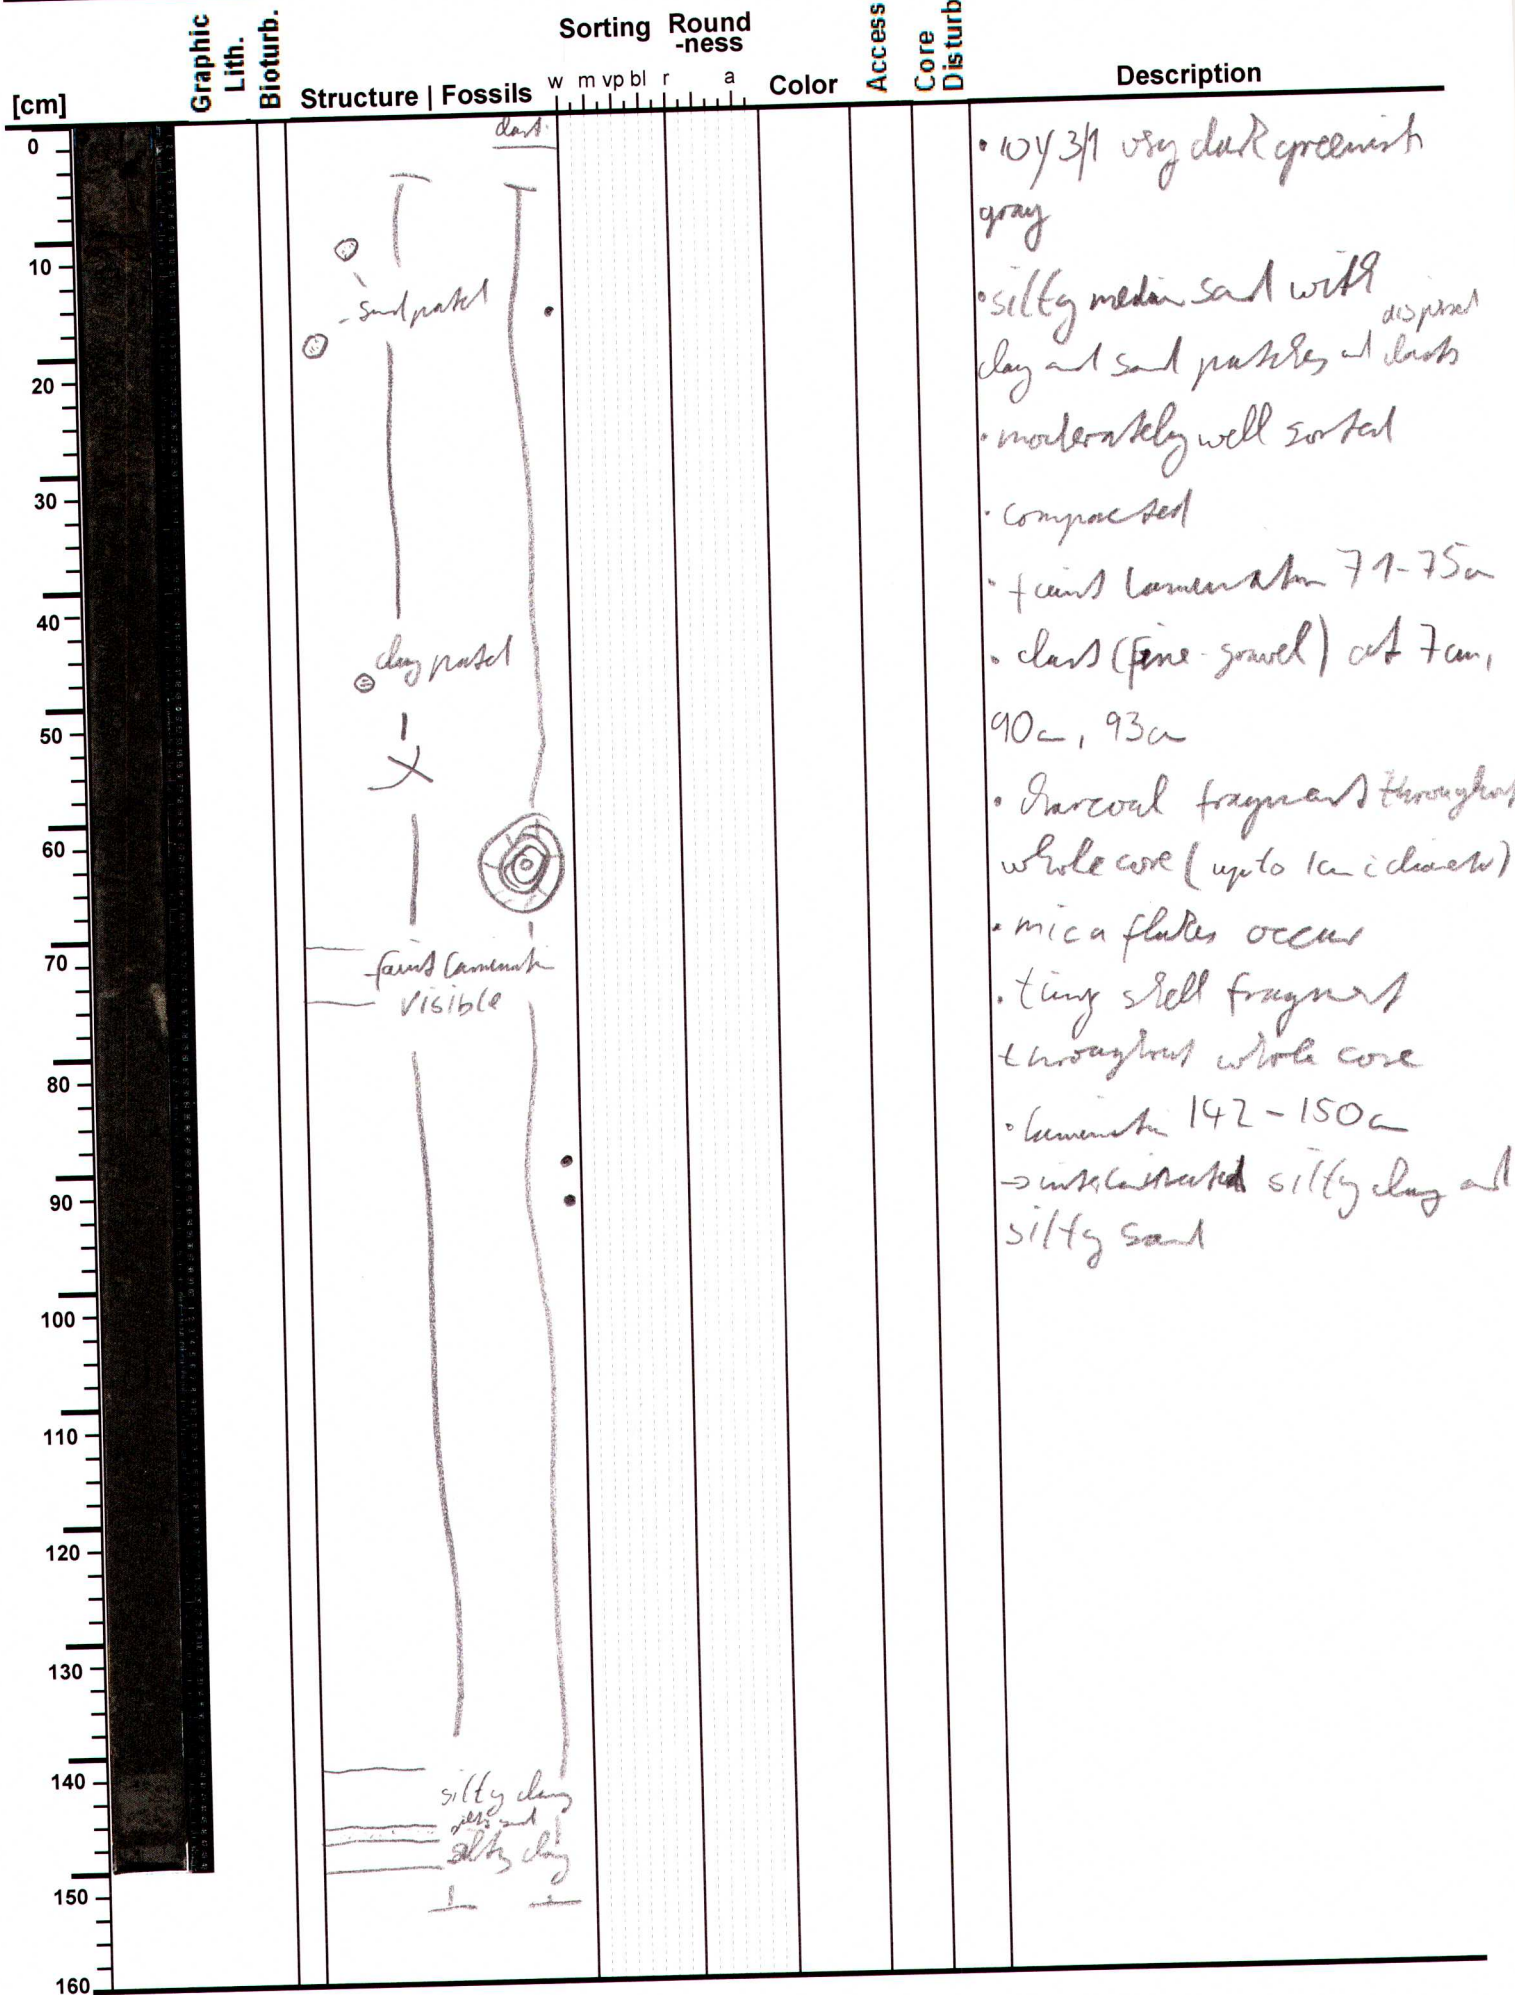 [cm]
Graphic
Lith.
Bioturb.
Structure | Fossils
Sorting
Round
-ness
w m vp bl r a
Color
Access
Core
Disturb
Description
0
10
20
30
40
50
60
70
80
90
100
110
120
130
140
150
160
clast
sand patch
clay patch
faint lamination
visible
silty clay
silty sand
silty clay
• 10Y 3/1 very dark greenish
gray
• silty medium sand with dispersed
clay and sand patches and clasts
• moderately well sorted
• compacted
• faint lamination 71-75cm
• clast (fine-gravel) at 7cm,
90cm, 93cm
• charcoal fragments throughout
whole core (up to 1cm i diameter)
• mica flakes occur
• tiny shell fragment
throughout whole core
• lamination 142-150cm
→ silty clay and
silty sand